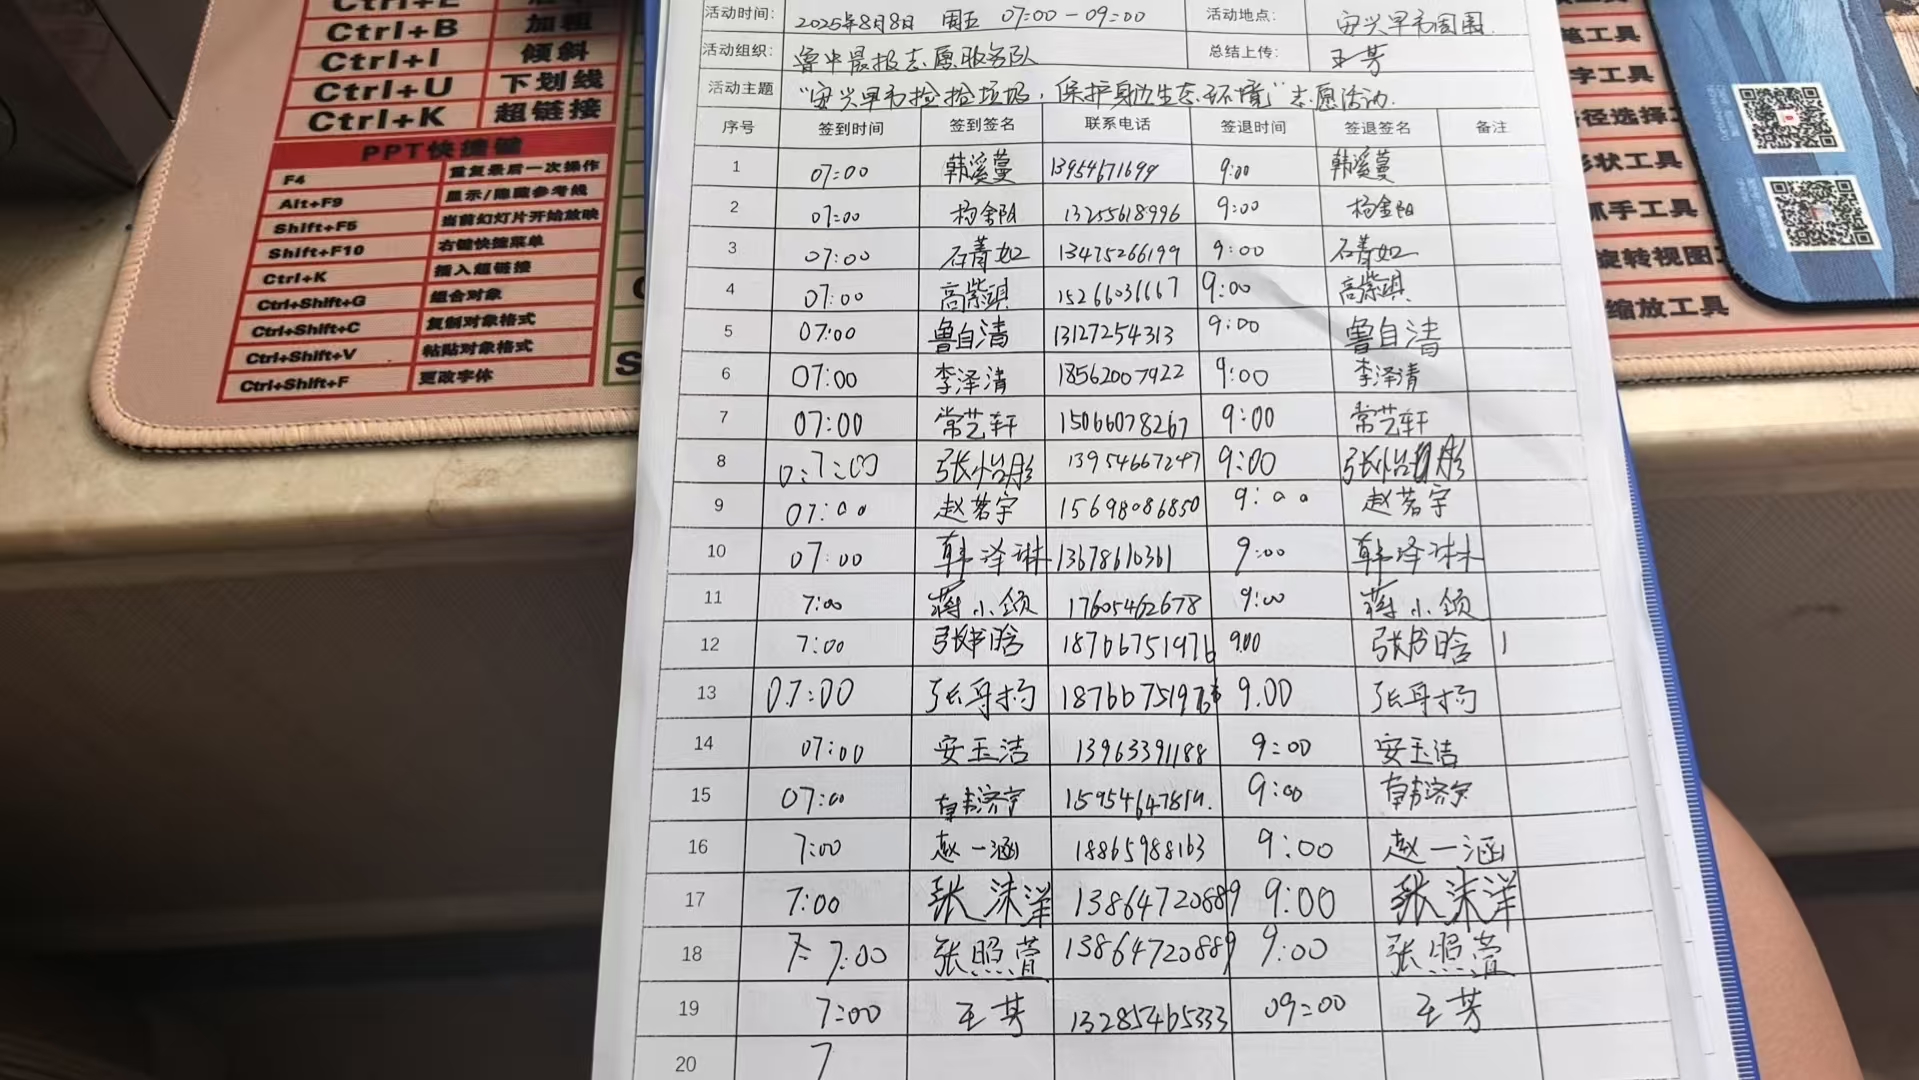 Ctrl+E
Ctrl+B 加粗
Ctrl+I 倾斜
Ctrl+U 下划线
Ctrl+K 超链接
PPT快捷键
F4 重复最后一次操作
Alt+F9 显示/隐藏参考线
Shift+F5 当前幻灯片开始放映
Shift+F10 右键快捷菜单
Ctrl+K 插入超链接
Ctrl+Shift+G 组合对象
Ctrl+Shift+C 复制对象格式
Ctrl+Shift+V 粘贴对象格式
Ctrl+Shift+F 更改字体
活动时间: 2025年8月8日 周五 07:00-09:00 活动地点: 安兴早市周围
活动组织: 鲁中晨报志愿服务队 总结上传: 王芳
活动主题 "安兴早市捡捡垃圾,保护身边生态环境"志愿活动.
序号 签到时间 签到签名 联系电话 签退时间 签退签名 备注
1 07:00 韩溪蔓 13954671699 9:00 韩溪蔓
2 07:00 杨金阳 13255618996 9:00 杨金阳
3 07:00 石菁如 13475266199 9:00 石菁如
4 07:00 高紫琪 15266036667 9:00 高紫琪
5 07:00 鲁自清 13127254313 9:00 鲁自清
6 07:00 李泽清 18562007922 9:00 李泽清
7 07:00 常艺轩 15066078267 9:00 常艺轩
8 0:7:00 张怡彤 13954667247 9:00 张怡彤
9 07:00 赵茗宇 15698086850 9:00 赵茗宇
10 07:00 韩泽琳 13678610361 9:00 韩泽琳
11 7:00 蒋小颂 17605462678 9:00 蒋小颂
12 7:00 张书晗 18766751976 9:00 张书晗
13 07:00 187667519 9.00
14 07:00 安玉洁 13963391188 9:00 安玉洁
15 07:00 韩济宇 9:00 韩济宇
16 7:00 赵一涵 18865988163 9:00 赵一涵
17 7:00 张沫洋 13864720889 9:00 张沫洋
18 7:00 张照萱 13864720889 9:00 张照萱
19 7:00 王芳 13285465333 09:00 王芳
20 7
笔工具
字工具
径选择工
形状工具
抓手工具
旋转视图工
缩放工具